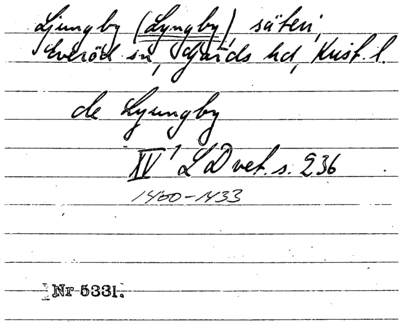 Ljungby (Lyngby) säteri,
Everöd sn, Gärds hd, Krist. l.
de Lyungby
XV 1 LDvet. s. 236
1400-1433
Nr 5331.